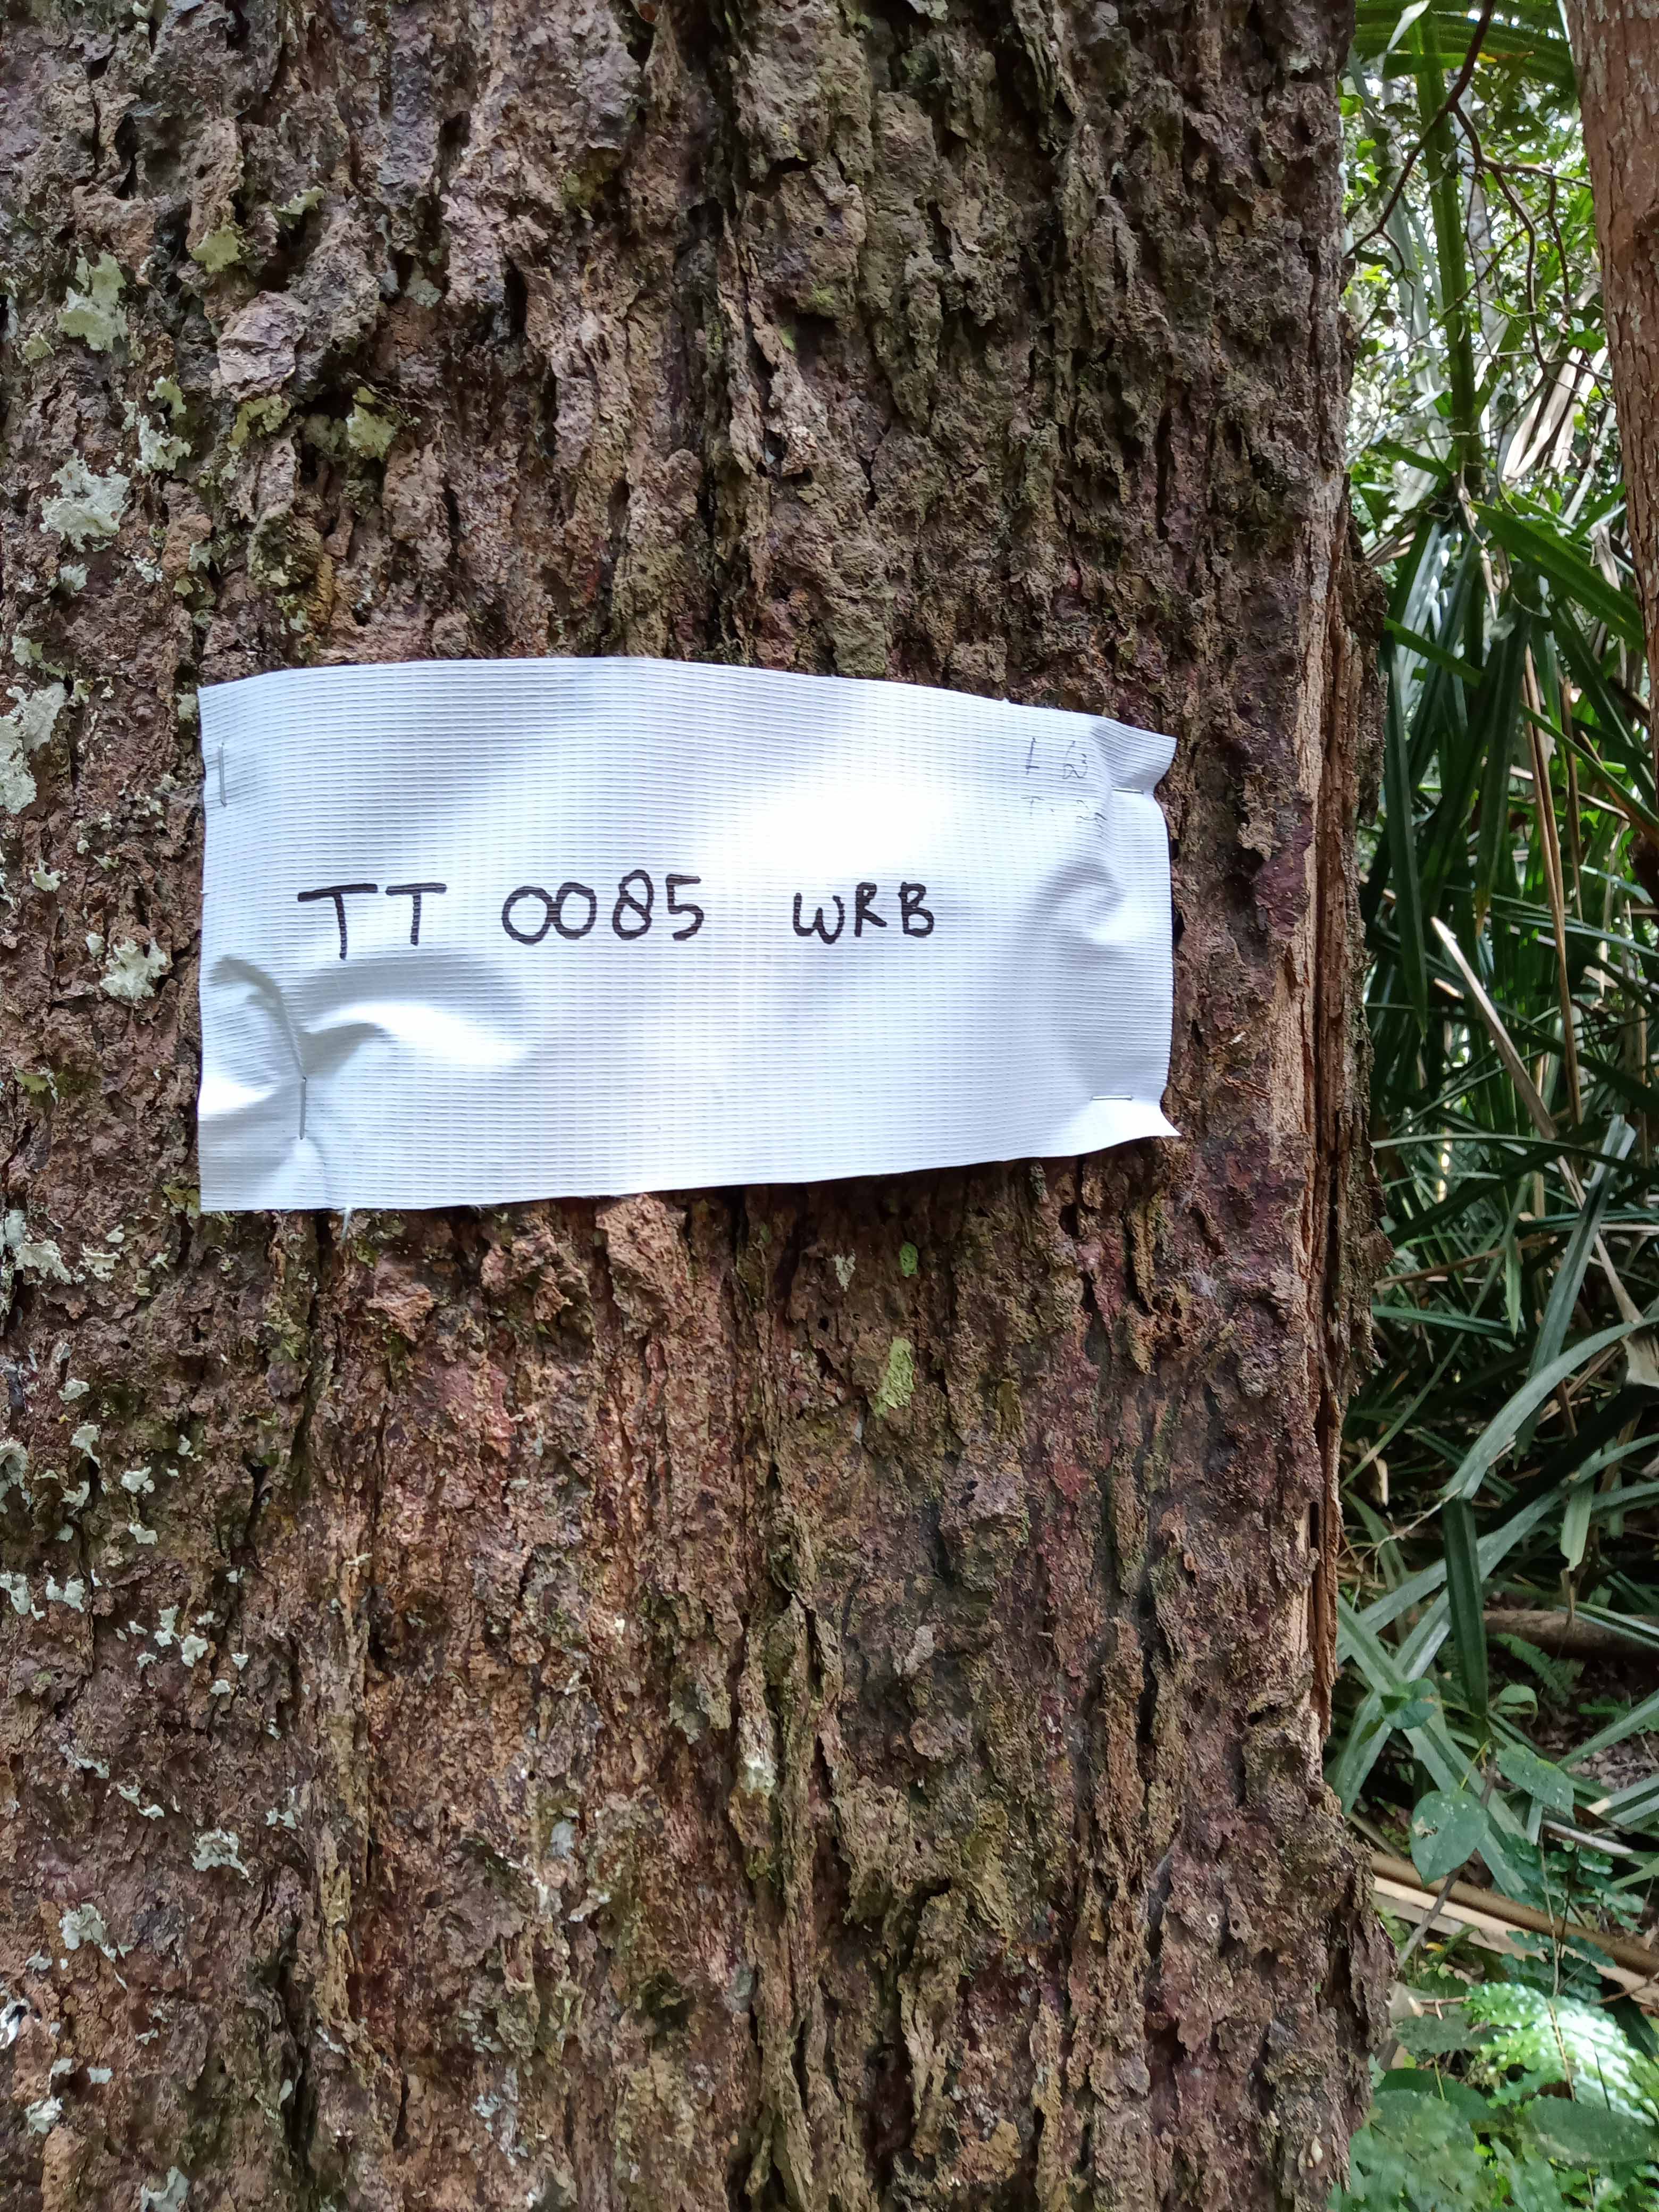 TT 0085 WRB